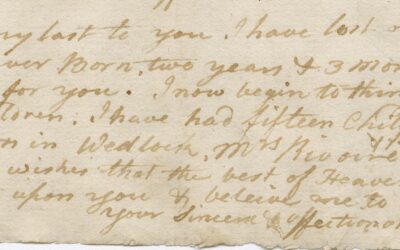 my last to you. I have lost
ver Born, two years & 3 mon
for you. I now begin to thin
ldren. I have had fifteen Chil
in Wedlock, Mrs Rivoire
wishes that the best of Heave
upon you & beleive me to
your Sincere & affectiona